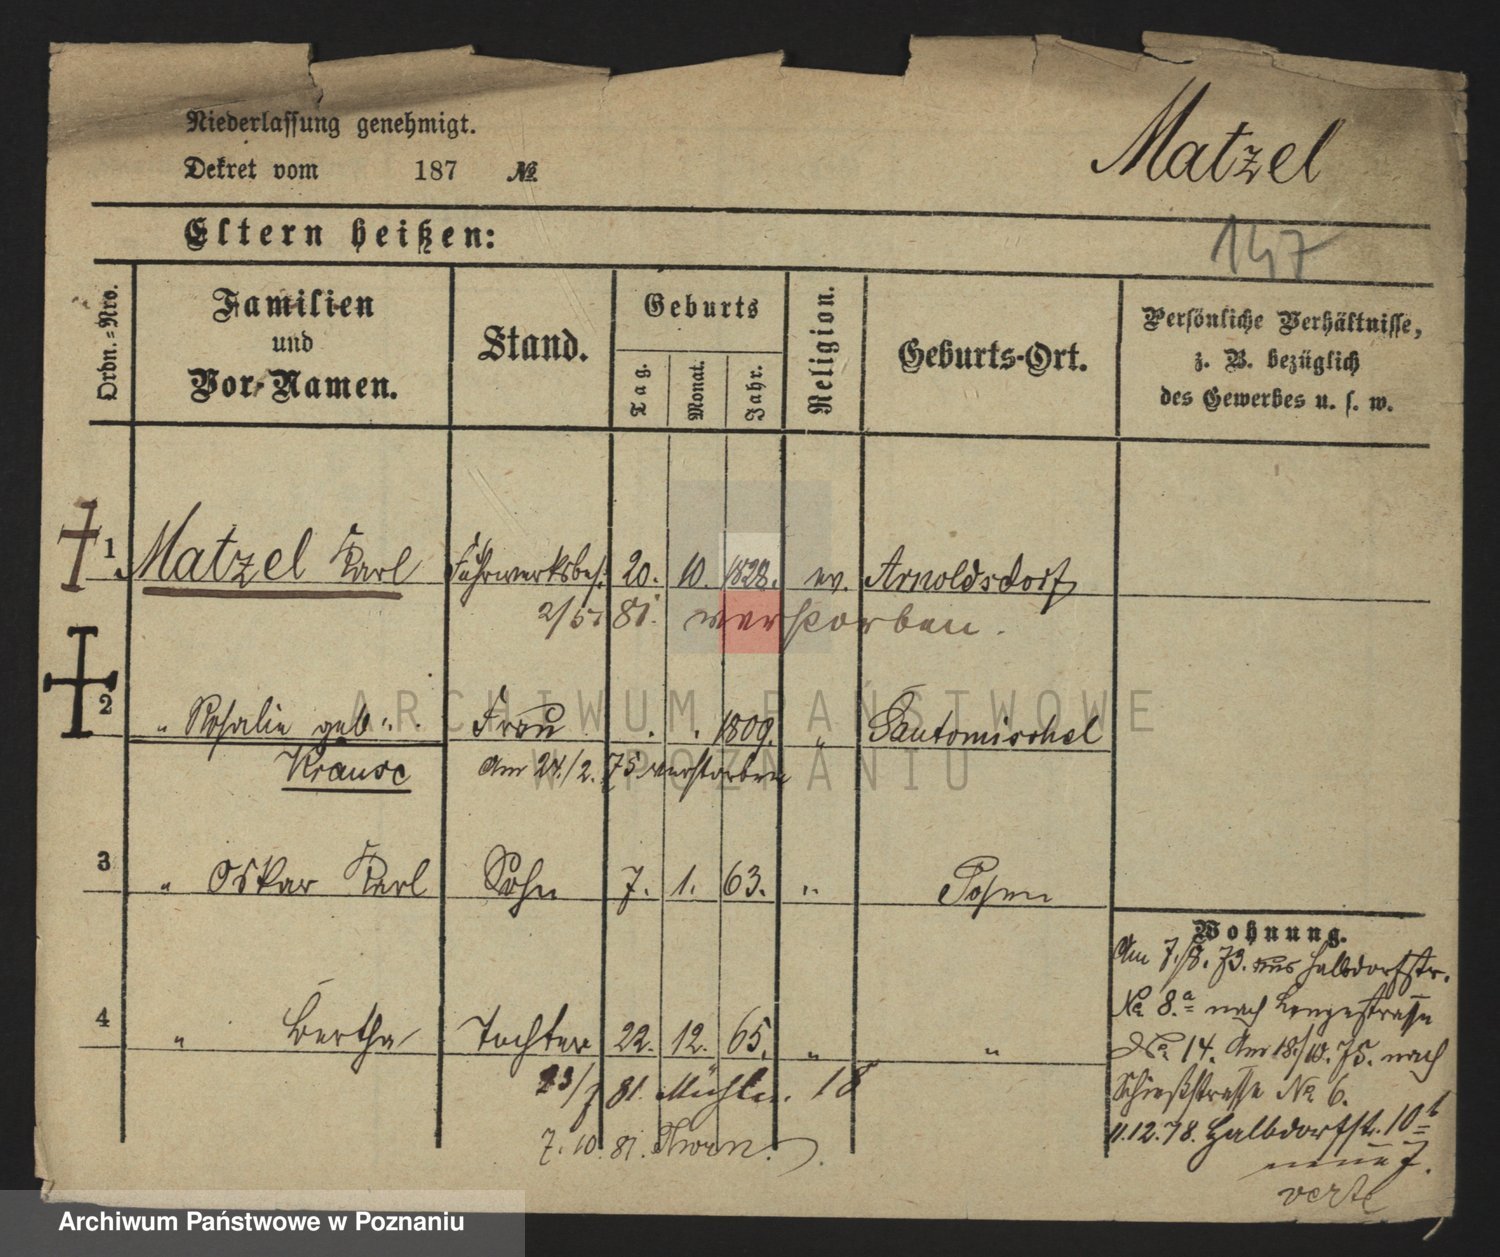 Niederlassung genehmigt.
Dekret vom 187 №
Matzel
Eltern heißen:
147
Ordn.-Nro.
Familien
und
Vor-Namen.
Stand.
Geburts
Tag.
Monat.
Jahr.
Religion.
Geburts-Ort.
Persönliche Verhältnisse,
z. B. bezüglich
des Gewerbes u. s. w.
1 Matzel Karl Fuhrwerksbes. 20. 10. 1828. ev. Arnoldsdorf
2/5. 81. verstorben.
2 " Rosalie geb. Frau . . 1809. " Santomischel
Krause Am 24./2. 75. verstorben
3 " Oskar Karl Sohn 7. 1. 63. " Posen
4 " Bertha Tochter 22. 12. 65. " "
23/7 81. Mühlen. 18
7. 10. 81. Thorn.
Wohnung.
Am 7./8. 73. aus Halbdorfstr.
№ 8.a nach Langestrasse
№ 14. Am 18./10. 75. nach
Schießstrasse № 6.
11.12.78. Halbdorfstr. 10b
neue 7.
verte
ARCHIWUM PAŃSTWOWE
W POZNANIU
Archiwum Państwowe w Poznaniu